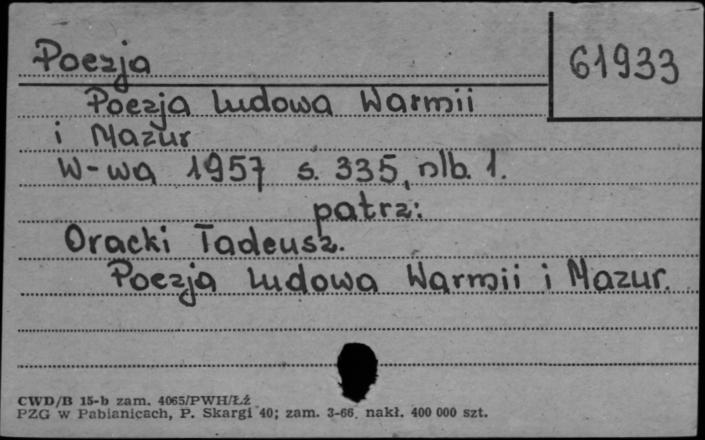 Poezja
61933
Poezja ludowa Warmii
i Mazur
W-wa 1957 s. 335, nlb. 1.
patrz:
Oracki Tadeusz.
Poezja ludowa Warmii i Mazur.
CWD/B 15-b zam. 4065/PWH/Łź
PZG w Pabianicach, P. Skargi 40; zam. 3-66, nakł. 400 000 szt.